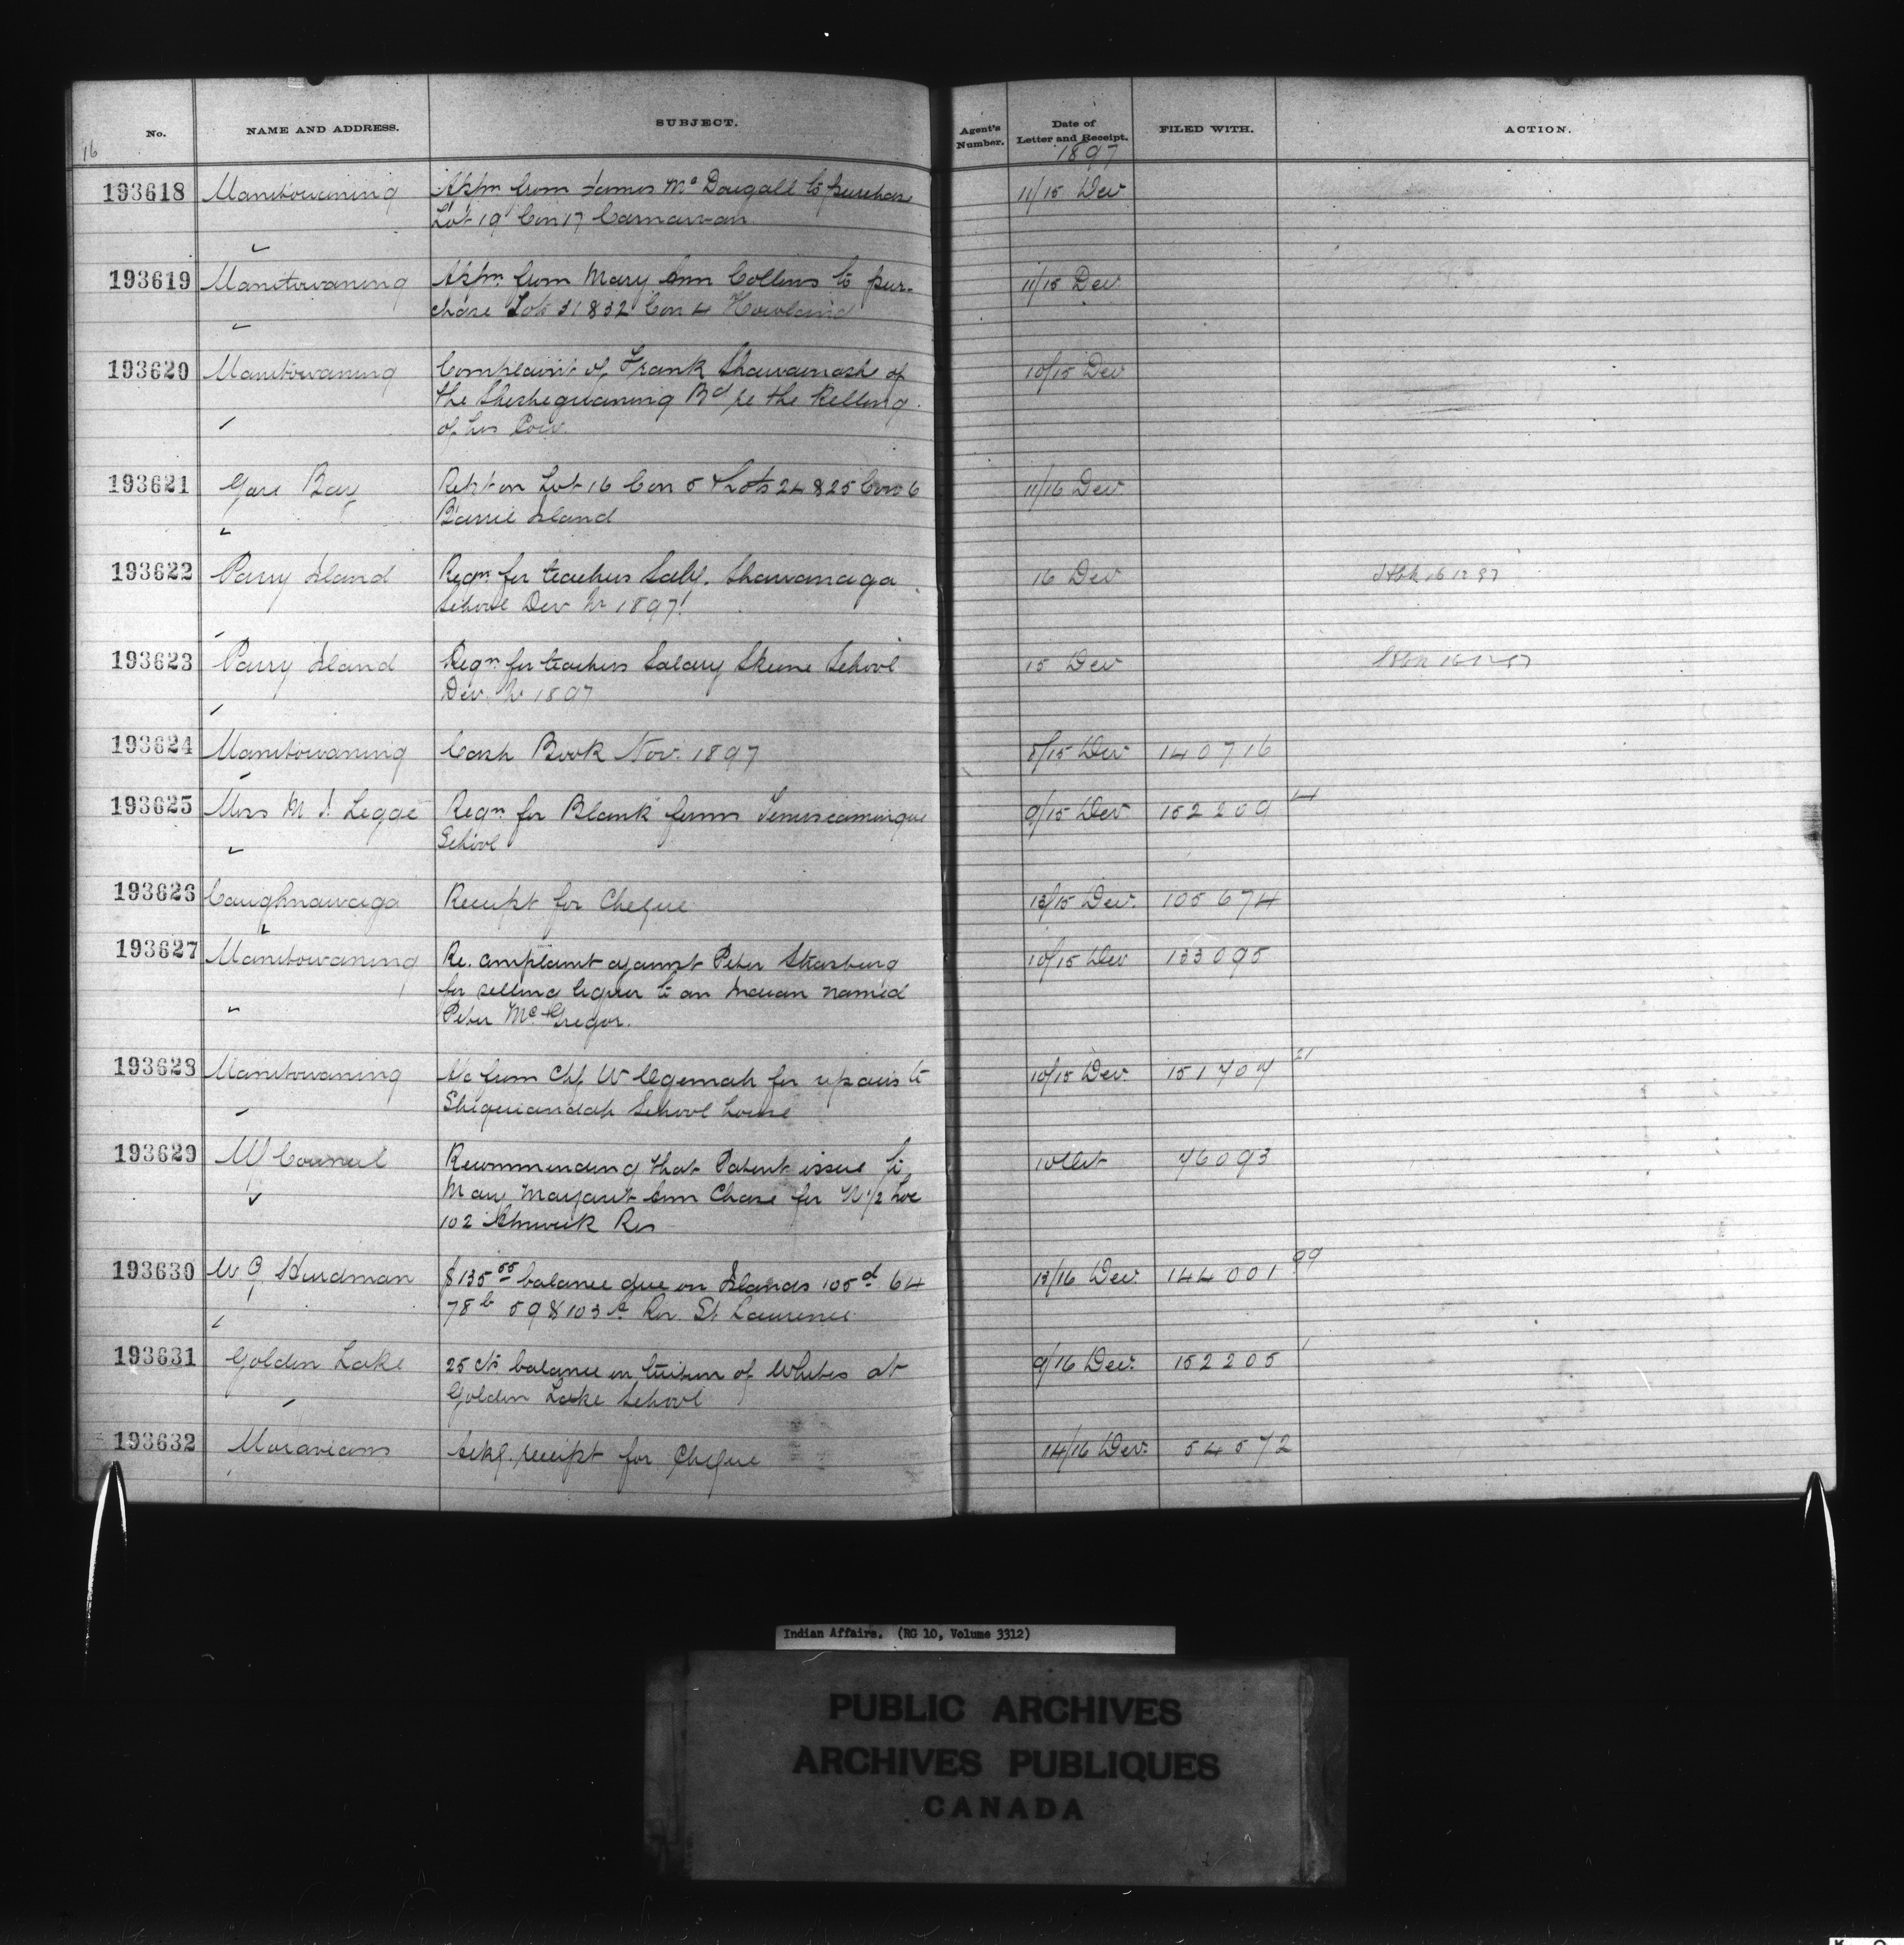 No. NAME AND ADDRESS. SUBJECT. Agent's Number. Date of Letter and Receipt. FILED WITH. ACTION.
16
1897
193618 Manitowaning Appn from James McDougall to purchase 11/15 Dec
Lot 19 Con 17 Carnarvon
193619 Manitowaning Appn from Mary Ann Collins to pur- 11/15 Dec
chase Lots 31 & 32 Con 4 Howland
193620 Manitowaning Complaint of Frank Shawanash of 10/15 Dec
the Sheshegwaning Bd re the Killing
of his Cow.
193621 Gore Bay Rept on Lot 16 Con 5 & Lots 24 & 25 Con 6 11/16 Dec
Barrie Island
193622 Parry Island Reqn for teachers Shawanaga 16 Dec 16 12 97
School Dec 1897
193623 Parry Island Reqn for teachers Salary Skene School 15 Dec
Dec. 1897
193624 Manitowaning Cash Book Nov. 1897 8/15 Dec 140716
193625 Miss M J. Legge Reqn for Blank forms Temiscamingue 9/15 Dec 152209 14
School
193626 Caughnawaga Receipt for Cheque 13/15 Dec. 105674
193627 Manitowaning Re. complaint against Peter Strasburg 10/15 Dec 133095
for selling liquor to an Indian named
Peter McGregor.
193628 Manitowaning A/c from Chf W Ogemah for repairs to 10/15 Dec. 151707 21
Sheguiandah School house
193629 M Council Recommending that Patent issue to 10 Oct 76093
Mary Margaret Ann Chase for N 1/2 Lot
102 Alnwick Res
193630 W G Hurdman $135 55 balance due on Islands 105d 64 13/16 Dec. 144001 99
78b 59 & 103 A Riv. St Lawrence
193631 Golden Lake 25 cts balance on tuition of Whites at 9/16 Dec. 152205 1
Golden Lake School
193632 Moravians Ackg. receipt for Cheque 14/16 Dec. 54572
Indian Affairs. (RG 10, Volume 3312)
PUBLIC ARCHIVES
ARCHIVES PUBLIQUES
CANADA